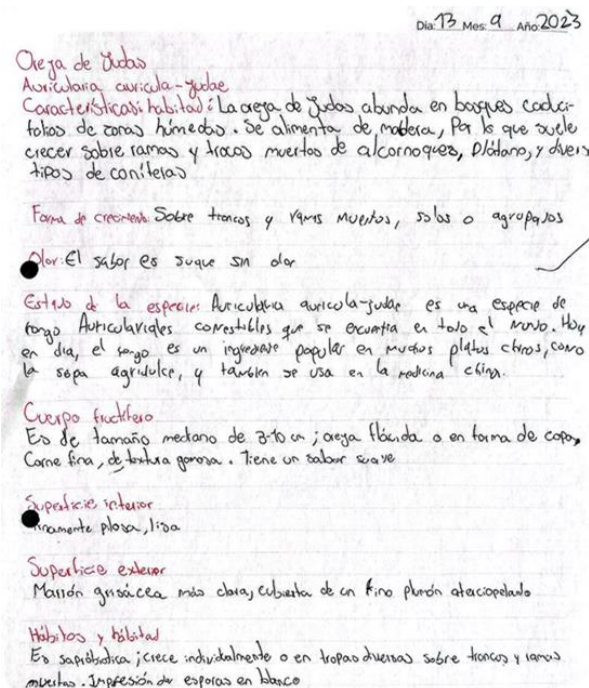 Dia: 13 Mes: 9 Año: 2023
Oreja de Judas
Auricularia auricula-Judae
Características: habitad: La oreja de Judas abunda en bosques caduci-
folios de zonas húmedas. Se alimenta de madera, Por lo que suele
crecer sobre ramas y trocos muertos de alcornoques, Plátano, y divers
tipos de coníferas
Forma de crecimiento: Sobre troncos y ramas muertos, solos o agrupados
Olor: El sabor es suave sin olor
Estado de la especie: Auricularia auricola-judae es una especie de
hongo Auriculariales comestibles que se encuentra en todo el mundo. Hoy
en dia, el hongo es un ingrediente popular en muchos platos chinos, como
la sopa agridulce, y tambien se usa en la medicina china.
Cuerpo fructifero
Es de tamaño mediano de 3-10 cm; oreja flácida o en forma de copa,
Carne fina, de textura gomosa. Tiene un sabor suave
Superficie interior
finamente pilosa, lisa
Superficie exterior
Marrón grisácea más clara, cubierta de un fino plumón aterciopelado
Hábitos y hábitad
Es sapróbatica; crece individualmente o en tropas diversas sobre troncos y ramas
muertas. Impresión de esporas en blanco